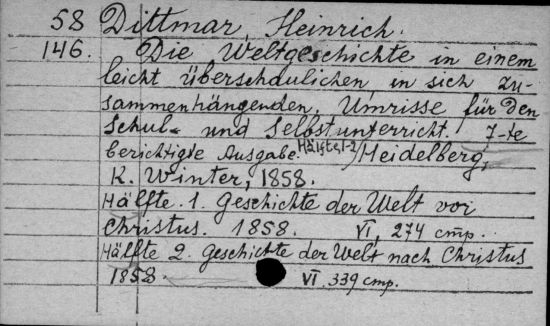 58 Dittmar, Heinrich.
146. Die Weltgeschichte in einem
leicht überschaulichen, in sich zu-
sammenhängenden, Umrisse für den
Schul- und Selbstunterricht. 7-te
berichtigte Ausgabe. Hälfte 1-2 Heidelberg,
K. Winter, 1858.
Hälfte 1. Geschichte der Welt vor
Christus. 1858. VI, 274 cmp.
Hälfte 2. Geschichte der Welt nach Christus
1858. VI, 339 cmp.